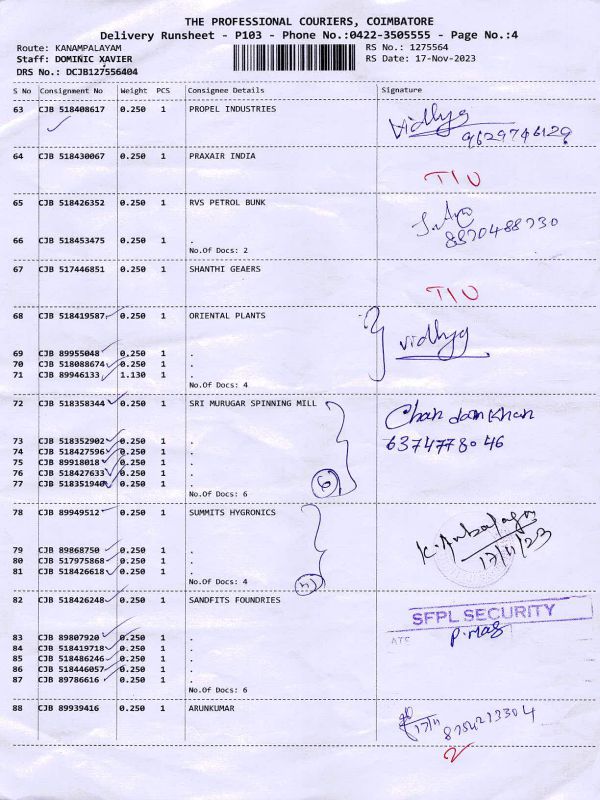 THE PROFESSIONAL COURIERS, COIMBATORE
Delivery Runsheet - P103 - Phone No.:0422-3505555 - Page No.:4
Route: KANAMPALAYAM RS No.: 1275564
Staff: DOMINIC XAVIER RS Date: 17-Nov-2023
DRS No.: DCJB127556404
S No Consignment No Weight PCS Consignee Details Signature
63 CJB 518408617 0.250 1 PROPEL INDUSTRIES Vidhya
9629746129
64 CJB 518430067 0.250 1 PRAXAIR INDIA
T/U
65 CJB 518426352 0.250 1 RVS PETROL BUNK
8870488730
66 CJB 518453475 0.250 1 .
No.Of Docs: 2
67 CJB 517446851 0.250 1 SHANTHI GEAERS
T/U
68 CJB 518419587 0.250 1 ORIENTAL PLANTS
Vidhya
69 CJB 89955048 0.250 1 .
70 CJB 518088674 0.250 1 .
71 CJB 89946133 1.130 1 .
No.Of Docs: 4
72 CJB 518358344 0.250 1 SRI MURUGAR SPINNING MILL Chandan Khan
6374778046
73 CJB 518352902 0.250 1 .
74 CJB 518427596 0.250 1 .
75 CJB 89918018 0.250 1 .
76 CJB 518427633 0.250 1 .
77 CJB 518351940 0.250 1 .
No.Of Docs: 6 6
78 CJB 89949512 0.250 1 SUMMITS HYGRONICS
17/11/23
79 CJB 89868750 0.250 1 .
80 CJB 517975868 0.250 1 .
81 CJB 518426618 0.250 1 .
No.Of Docs: 4 4
82 CJB 518426248 0.250 1 SANDFITS FOUNDRIES
SFPL SECURITY
83 CJB 89807920 0.250 1 .
84 CJB 518419718 0.250 1 .
85 CJB 518486246 0.250 1 .
86 CJB 518446057 0.250 1 .
87 CJB 89786616 0.250 1 .
No.Of Docs: 6
88 CJB 89939416 0.250 1 ARUNKUMAR
17/11 8754213304
2